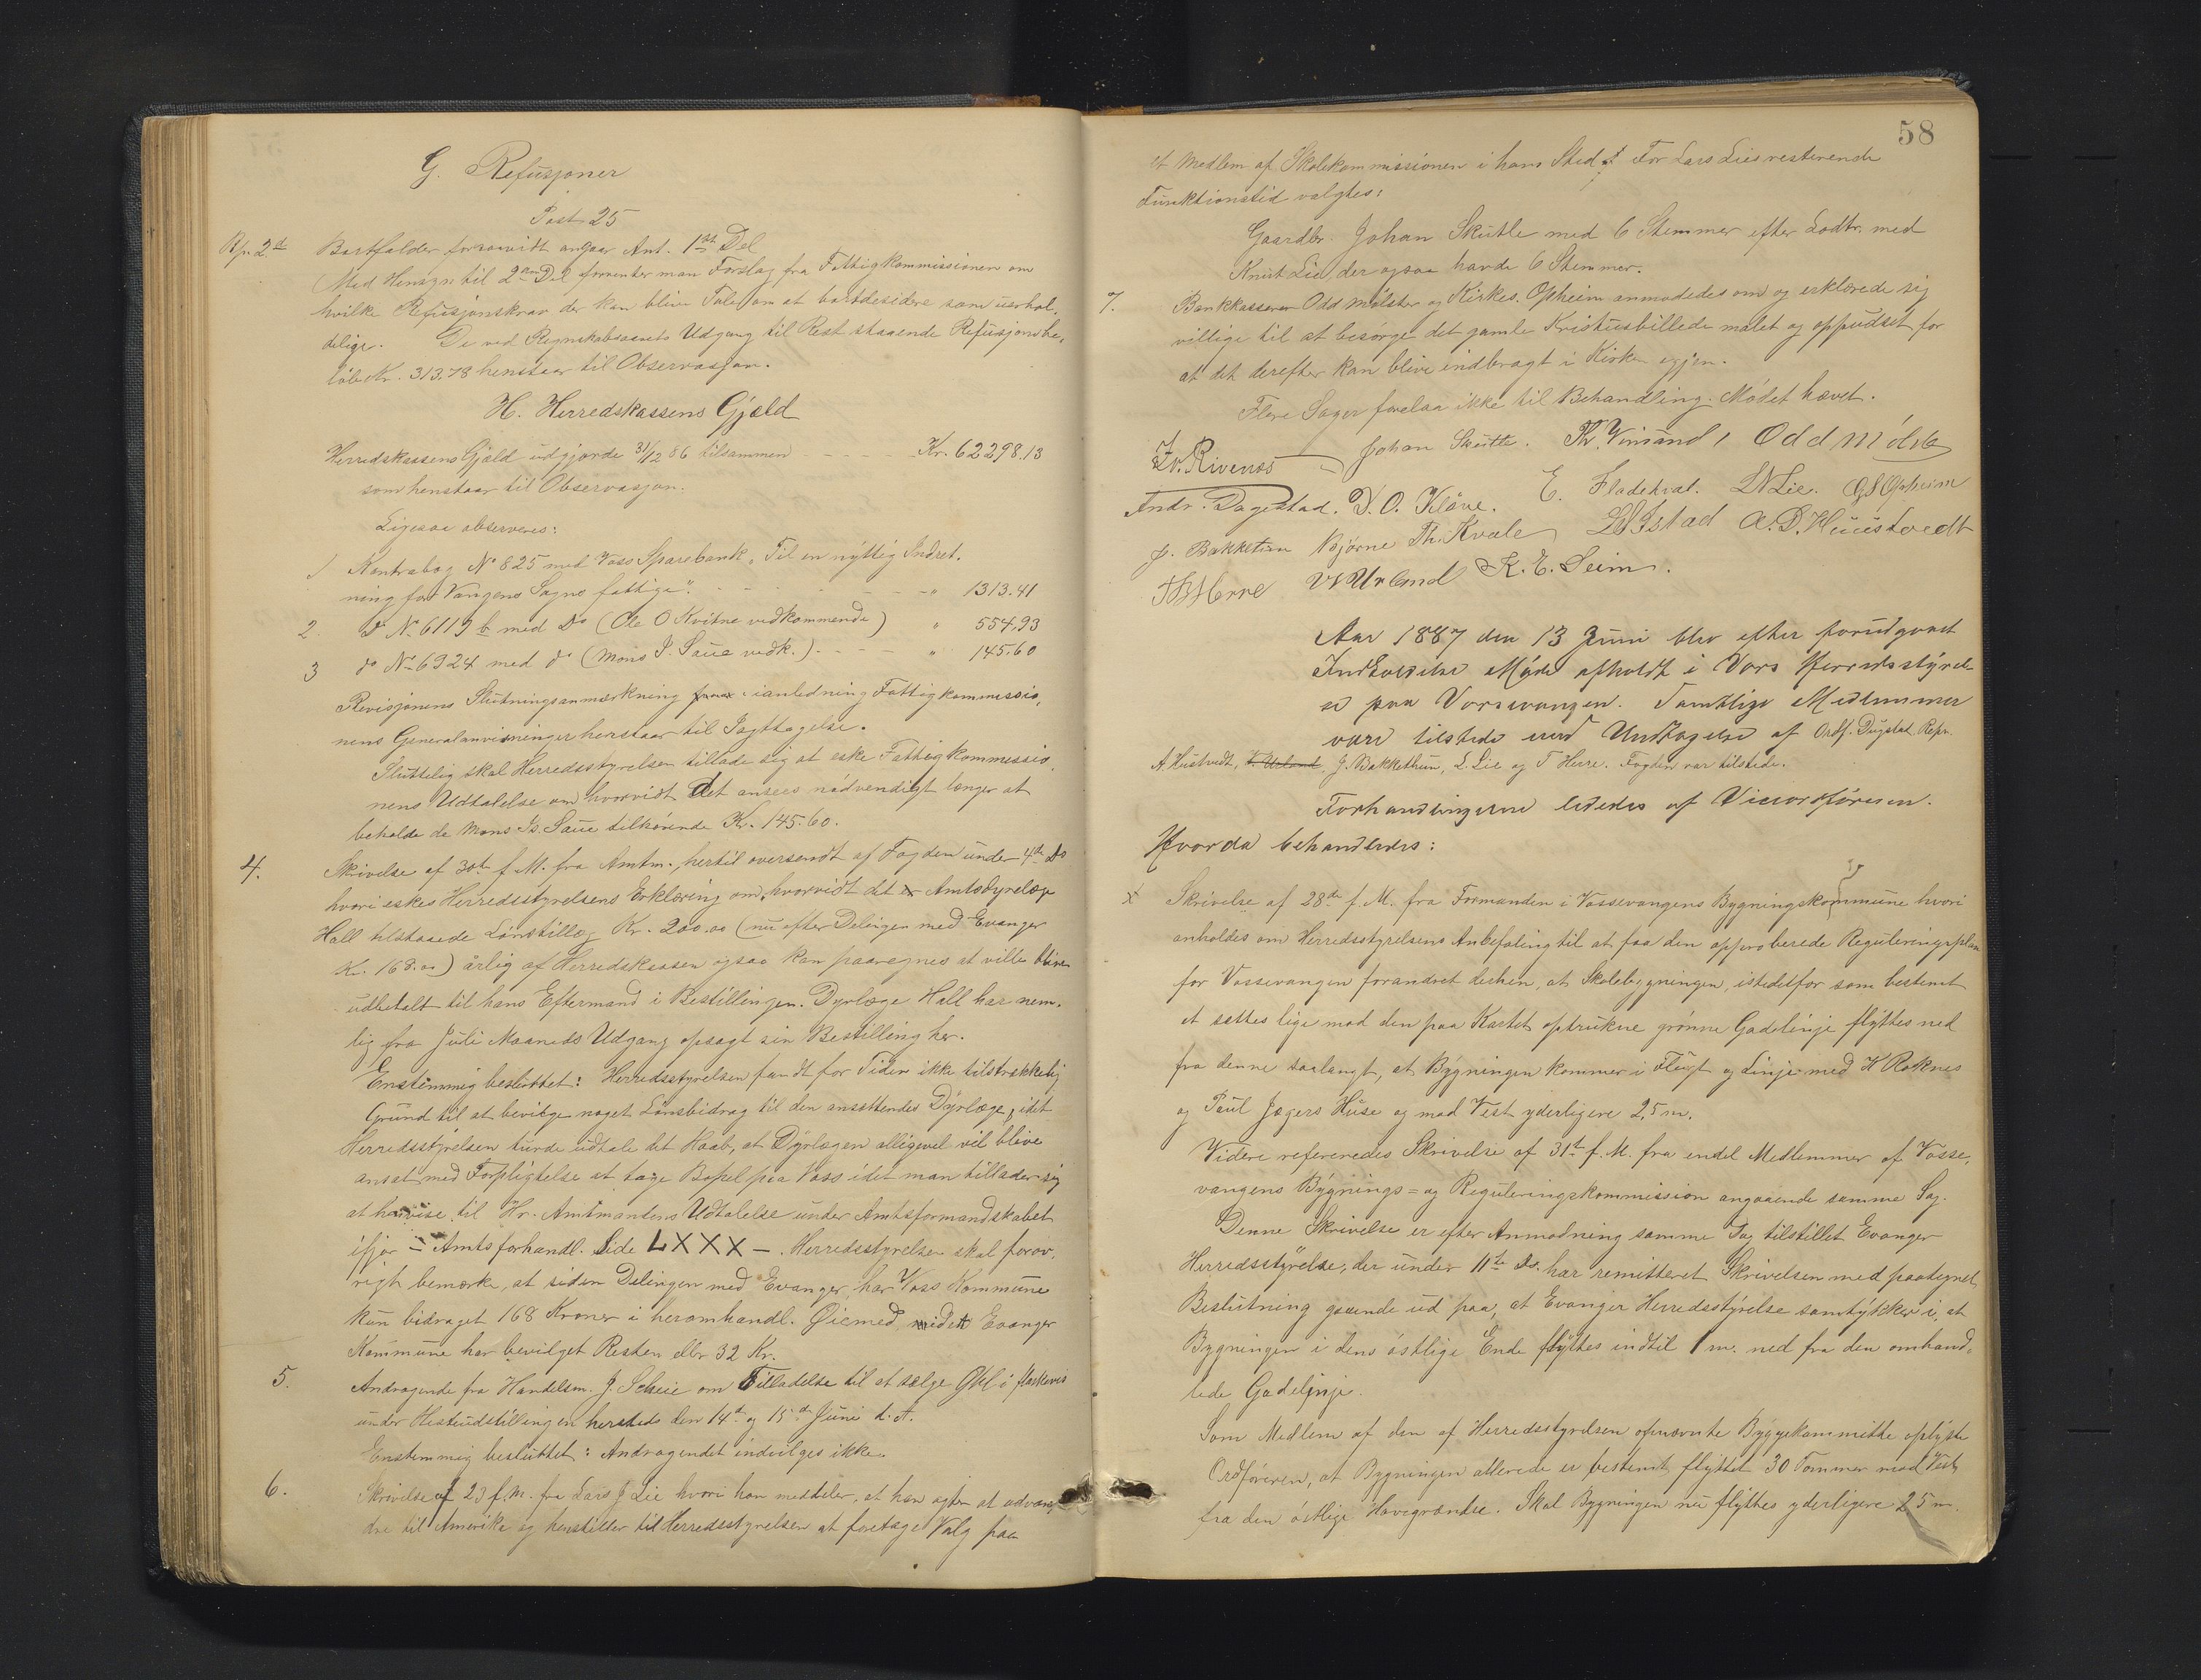 G. Refusjoner
Post 25
Rp. 2d Bortfalder forsaavidt angaar Ant. 1ste Del
Med Hensyn til 2den Del forventer man Forslag fra Fattigkommissionen om
hvilke Refusjonskrav der kan blive Tale om at bortdesidere som uerhol-
delige. De ved Regnskabsaarets Udgang til Rest staaende Refusjonsbe-
løb Kr. 313.78 henstaar til Observasjon.
H. Herredskassens Gjæld
Herredskassens Gjæld udgjorde 31/12 86 tilsammen - - - - Kr. 62298.13
som henstaar til Observasjon.
Ligesaa observeres:
1 Kontrabog No 825 med Voss Sparebank "Til en nyttig Indret-
ning for Vangens Sogns fattige". - - - - - - " 1313.41
2. Do No 6119 b med Do (Ole O Kvitne vedkommende) " 554.93
3 do No 6924 med do (Mons I. Saue vedk.). - - - " 145.60
Revisjonens Slutningsanmærkning ianledning Fattigkommissio-
nens Generalanvisninger henstaar til Iagttagelse.
Sluttelig skal Herredsstyrelsen tillade sig at eske Fattigkommissio-
nens Udtalelse om hvorvidt det ansees nødvendigt længer at
beholde de Mons Is. Saue tilhørende Kr. 145.60.
4. Skrivelse af 30te f. M. fra Amtm., hertil oversendt af Fogden under 4de Ds
hvori eskes Herredsstyrelsens Erklæring om, hvorvidt det er Amtsdyrelæge
Hall tilstaaede Lønstillæg Kr. 200.00 (nu efter Delingen med Evanger
Kr. 168.00) årlig af Herredskassen ogsaa kan paaregnes at ville blive
udbetalt til hans Eftermand i Bestillingen. Dyrlæge Hall har nem-
lig fra Juli Maaneds Udgang opsagt sin Bestilling her.
Enstemmig besluttet: Herredsstyrelsen fandt for Tiden ikke tilstrækkelig
Grund til at bevilge noget Lønsbidrag til den ansættendes Dyrlæge, idet
Herredsstyrelsen turde udtale det Haab, at Dyrlægen alligevel vil blive
ansat med Forpligtelse at tage Bopel paa Voss idet man tillader sig
at henvise til Hr. Amtmandens Udtalelse under Amtsformandskabet
ifjor - Amtsforhandl. Side LXXX -. Herredsstyrelsen skal forøv-
rigt bemærke, at siden Delingen med Evanger, har Voss Kommune
kun bidraget 168 Kroner i heromhandl. Øiemed, Evanger
Kommune har bevilget Resten eller 32 Kr.
5. Andragende fra Handelsm. J. Scheie om Tilladelse til at sælge Øl i flaskevis
under Hesteudstillingen hersteds den 14de og 15de Juni d. A.
Enstemmig besluttet: Andragendet indvilges ikke.
6. Skrivelse af 23 f. M. fra Lars J Lie hvori han meddeler, at han agter at udvan-
dre til Amerika og henstiller til Herredsstyrelsen at foretage Valg paa
58
et Medlem af Skolekommissionen i hans Sted. For Lars Lies resterende
Funktionstid valgtes:
Gaardbr. Johan Skutle med 6 Stemmer efter Lodtr. med
Knut Lie, der ogsaa havde 6 Stemmer.
7. Bankkasserer Odd Mølster og Kirkes. Opheim anmodedes om og erklærede sig
villige til at besørge det gamle Kristusbillede malet og oppudset for
at det derefter kan blive indbragt i Kirken igjen.
Flere Sager forelaa ikke til Behandling. Mødet hævet.
Rivenæs Johan Skutle. Th. Vinsand, Odd Mølster
Andr. Dagestad. D. O. Kløve. E. Fladekval. L N Lie. G S Opheim
J. Bakkethun Bjørne Th. Kvale Istad A. D. Huustvedt
Herre V Urland K. E. Seim.
Aar 1887 den 13 Juni blev efter forudgaaet
Indkaldelse Møde afholdt i Voss Herredsstyrel-
se paa Vossevangen. Samtlige Medlemmer
vare tilstede med Undtagelse af Ordf. Dugstad, Repr.
A. Hustvedt, V. Urland, J. Bakkethun, L. Lie og T Herre. Fogden var tilstede.
Forhandlingerne lededes af Viceordføreren.
Hvorda behandledes:
x Skrivelse af 28de f. M. fra Formanden i Vossevangens Bygningskommune hvori
anholdes om Herredsstyrelsens Anbefaling til at faa den approberede Reguleringsplan
for Vossevangen forandret derhen, at Skolebygningen, istedetfor som bestemt
at sættes lige mod den paa Kartet optrukne grønne Gadelinje flyttes ned
fra denne saalangt, at Bygningen kommer i Flugt og Linje med K Roknes
og Paul Jægers Huse og mod Vest yderligere 2,5 m.
Videre refereredes Skrivelse af 31te f. M. fra endel Medlemmer af Vosse-
vangens Bygnings- og Reguleringskommission angaaende samme Sag.
Denne Skrivelse er efter Anmodning samme Dag tilstillet Evanger
Herredsstyrelse, der under 11te Ds. har remitteret Skrivelsen med paategnet
Beslutning gaaende ud paa, at Evanger Herredsstyrelse samtykker i, at
Bygningen i dens østlige Ende flyttes indtil 1 m. ned fra den omhand-
lede Gadelinje.
Som Medlem af den af Herredsstyrelsen opnævnte Byggekommitte oplyste
Ordføreren, at Bygningen allerede er bestemt flyttet 30 Tommer mod Vest
fra den østlige Havegrændse. Skal Bygningen nu flyttes yderligere 2,5 m.